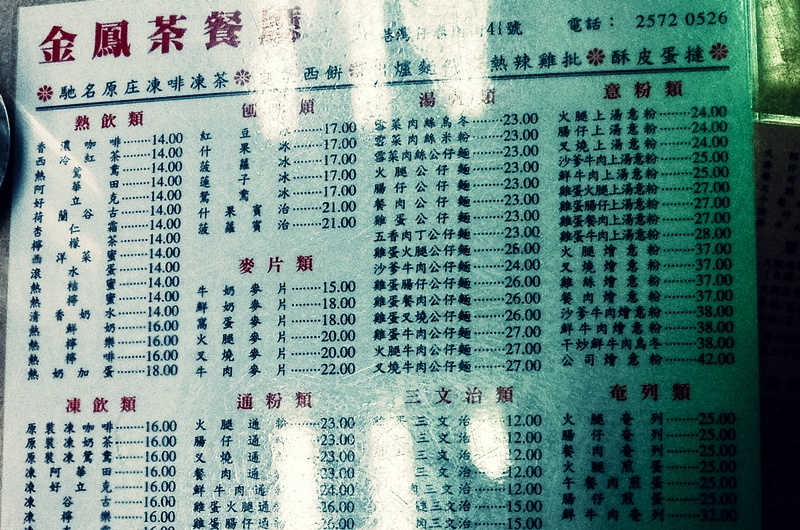 金鳳茶餐廳
春園街41號
電話： 2572 0526
馳名原庄凍啡凍茶
西餅
熱辣雞批 酥皮蛋撻
熱飲類
香濃咖啡 14.00
西冷紅茶 14.00
熱鴛鴦 14.00
阿華田 14.00
好立克 14.00
荷蘭谷古 14.00
杏仁霜 14.00
檸檬茶 14.00
西洋菜蜜 14.00
滾水蛋 14.00
熱桔蜜 14.00
熱檸蜜 14.00
清香奶水 14.00
熱鮮奶 16.00
熱檸樂 16.00
熱檸啡 16.00
熱奶加蛋 18.00
凍飲類
原裝凍咖啡 16.00
原裝凍奶茶 16.00
原裝凍鴛鴦 16.00
凍阿華田 16.00
凍好立克 16.00
凍谷古 16.00
凍檸 16.00
刨冰類
紅豆冰 17.00
什果冰 17.00
菠蘿冰 17.00
蓮子冰 17.00
鴛鴦冰 17.00
什果賓治 21.00
菠蘿賓治 21.00
麥片類
牛奶麥片 15.00
鮮奶麥片 18.00
窩蛋麥片 18.00
火腿麥片 20.00
叉燒麥片 20.00
牛肉麥片 22.00
通粉類
火腿通粉 23.00
腸仔通
雞蛋通
餐肉通
鮮牛肉通 24.00
雞蛋火腿通 26.00
雞蛋腸仔通 26.00
湯 類
雪菜肉絲烏冬 23.00
雪菜肉絲米粉 23.00
雪菜肉絲公仔麵 23.00
火腿公仔麵 23.00
腸仔公仔麵 23.00
餐肉公仔麵 23.00
雞蛋公仔麵 23.00
五香肉丁公仔麵 23.00
雞蛋火腿公仔麵 26.00
沙爹牛肉公仔麵 24.00
雞蛋腸仔公仔麵 26.00
雞蛋餐肉公仔麵 26.00
雞蛋叉燒公仔麵 26.00
雞蛋牛肉公仔麵 27.00
火腿牛肉公仔麵 27.00
叉燒牛肉公仔麵 27.00
三文治類
三文治 12.00
三文治 12.00
三文治 12.00
三文治 12.00
肉三文治 12.00
三文治 15.00
意粉類
火腿上湯意粉 24.00
腸仔上湯意粉 24.00
沙爹牛肉上湯意粉 25.00
鮮牛肉上湯意粉 25.00
雞蛋火腿上湯意粉 27.00
雞蛋腸仔上湯意粉 27.00
雞蛋餐肉上湯意粉 27.00
雞蛋牛肉上湯意粉 28.00
火腿燴意粉 37.00
叉燒燴意粉 37.00
雞絲燴意粉 37.00
餐肉燴意粉 37.00
沙爹牛燴意粉 38.00
鮮牛肉燴意粉 38.00
干炒鮮牛烏冬 38.00
公司燴意粉 42.00
奄列類
火腿奄列 25.00
腸仔奄列 25.00
餐肉奄列 25.00
火腿煎蛋 25.00
午餐肉煎蛋 25.00
腸仔煎蛋 25.00
鮮牛肉奄列